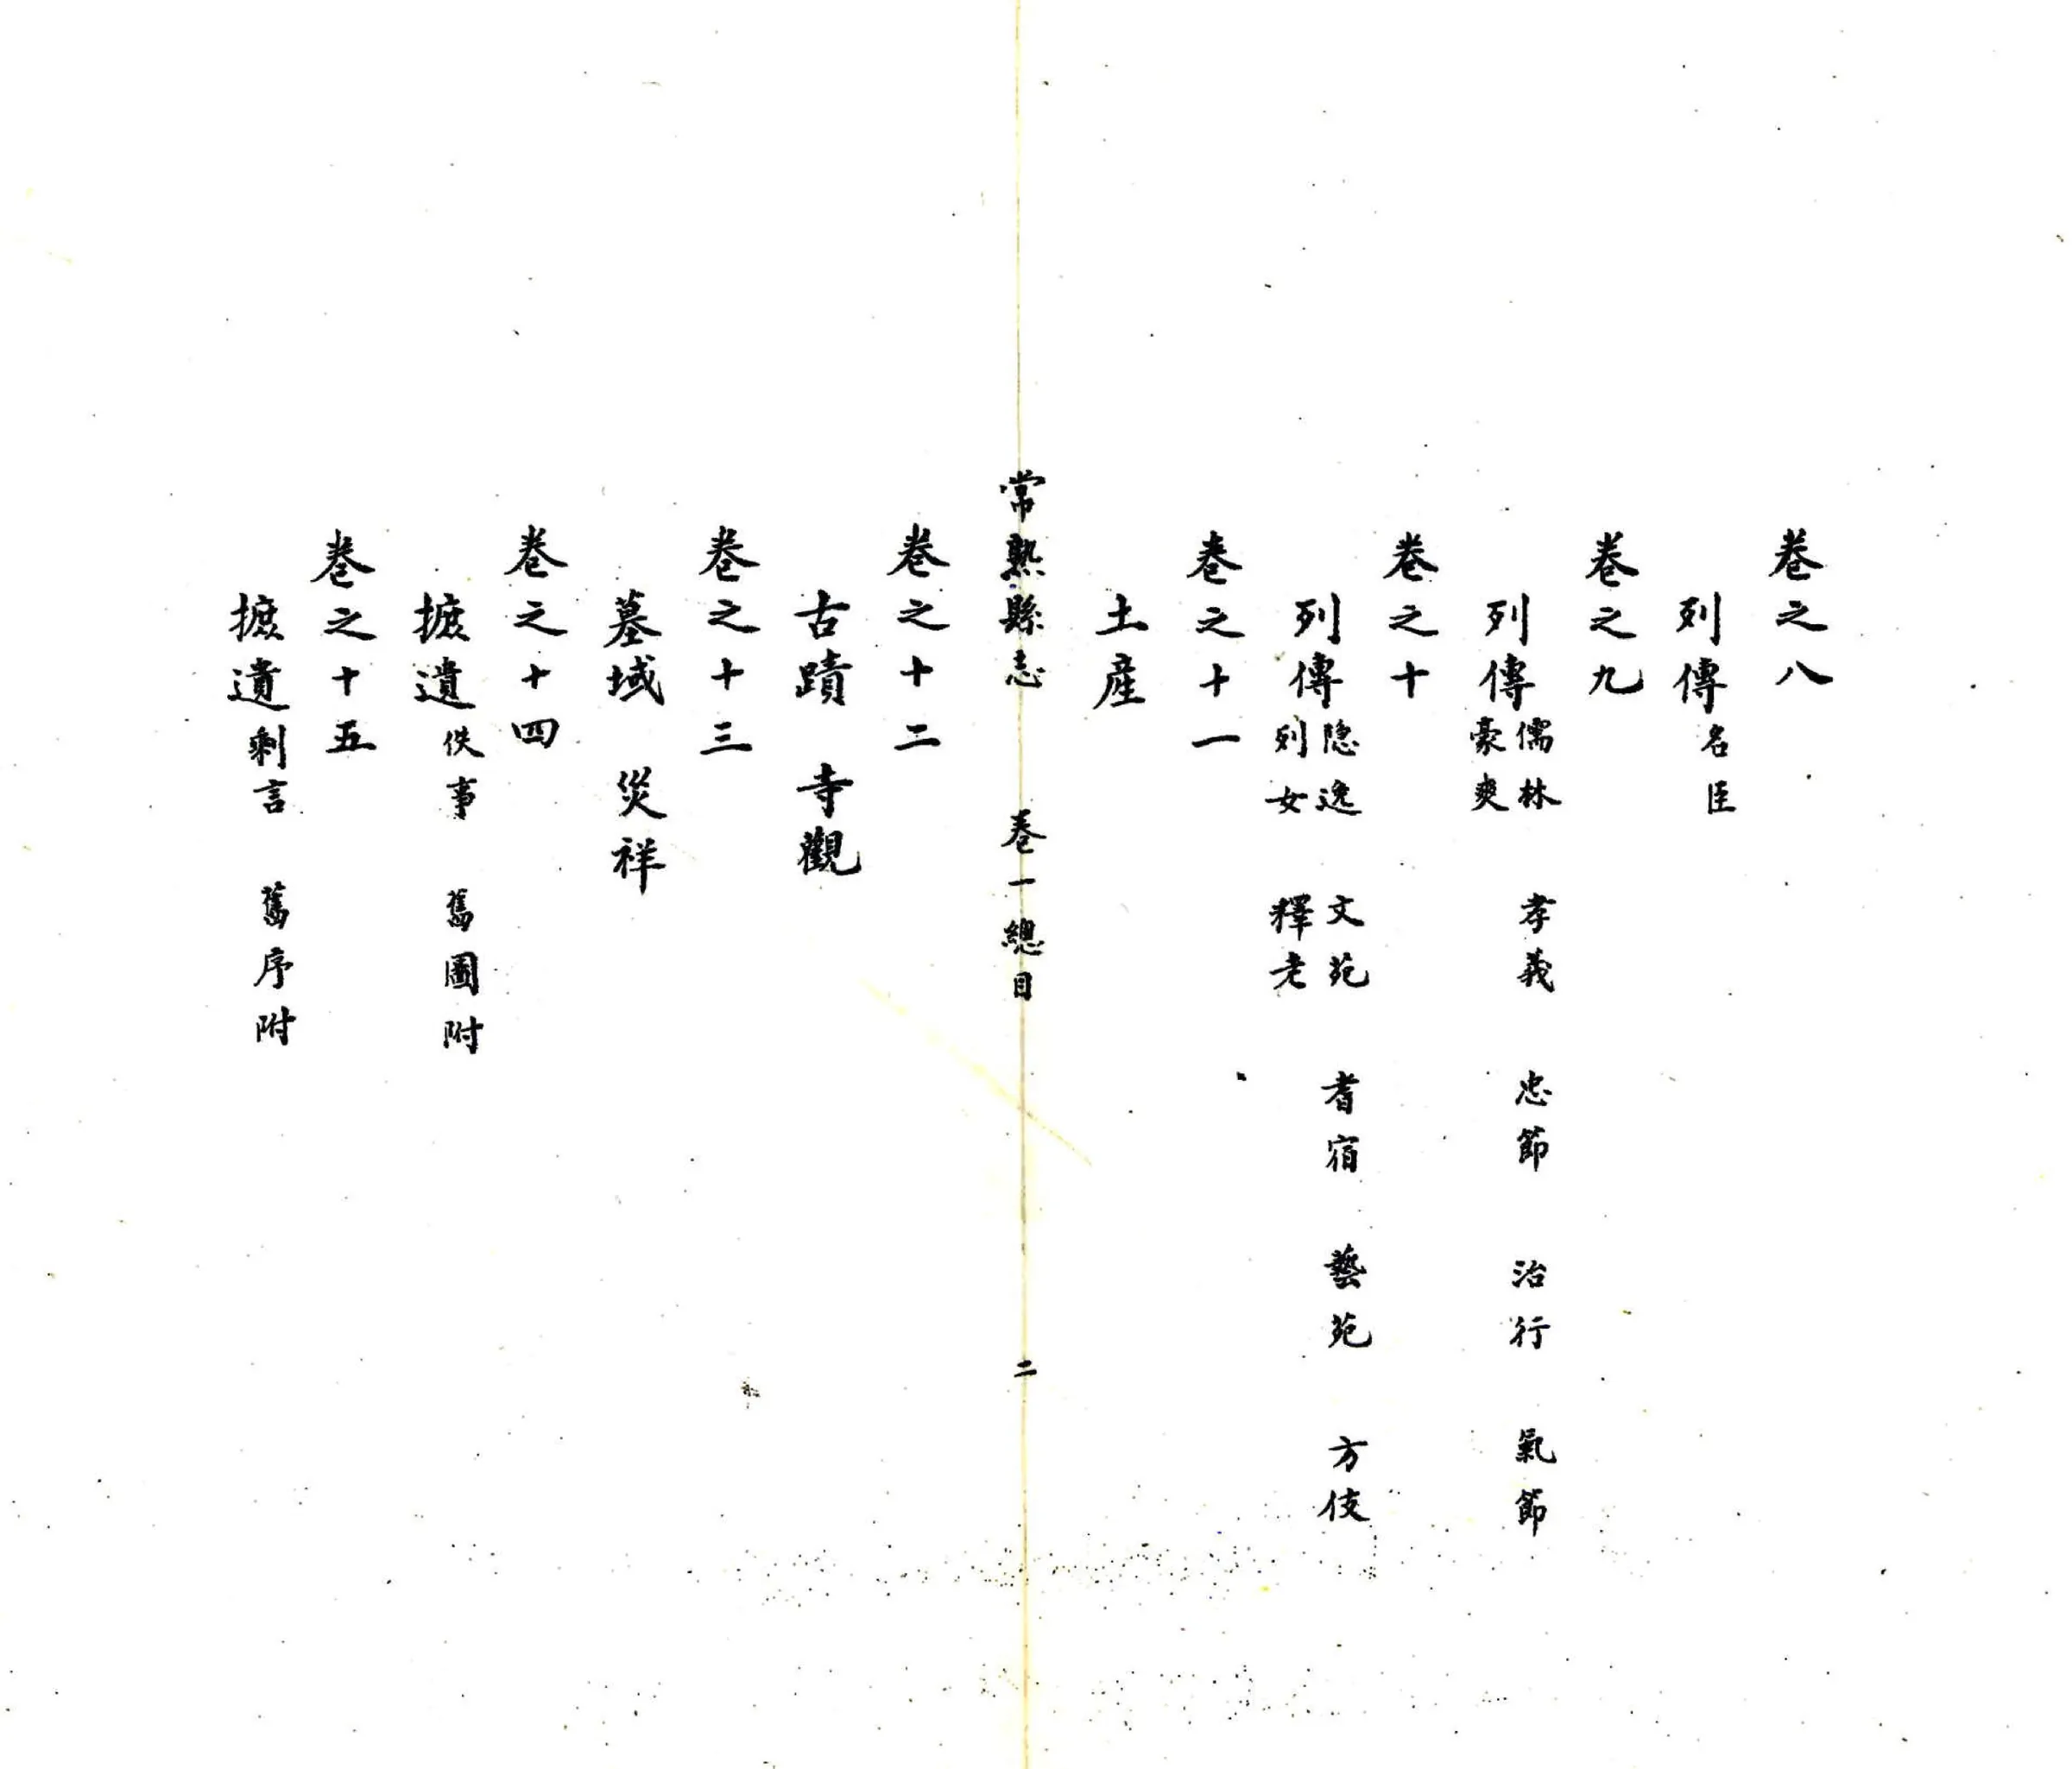 卷之八
列傳 名臣
卷之九
列傳 儒林 孝義 忠節 治行 氣節
豪爽
卷之十
列傳 隐逸 文苑 耆宿 藝苑 方伎
列女 釋老
卷之十一
土産
常熟縣志 卷一總目 二
卷之十二
古蹟 寺觀
卷之十三
墓域 災祥
卷之十四
摭遺 佚事 舊圖附
卷之十五
摭遺 剩言 舊序附